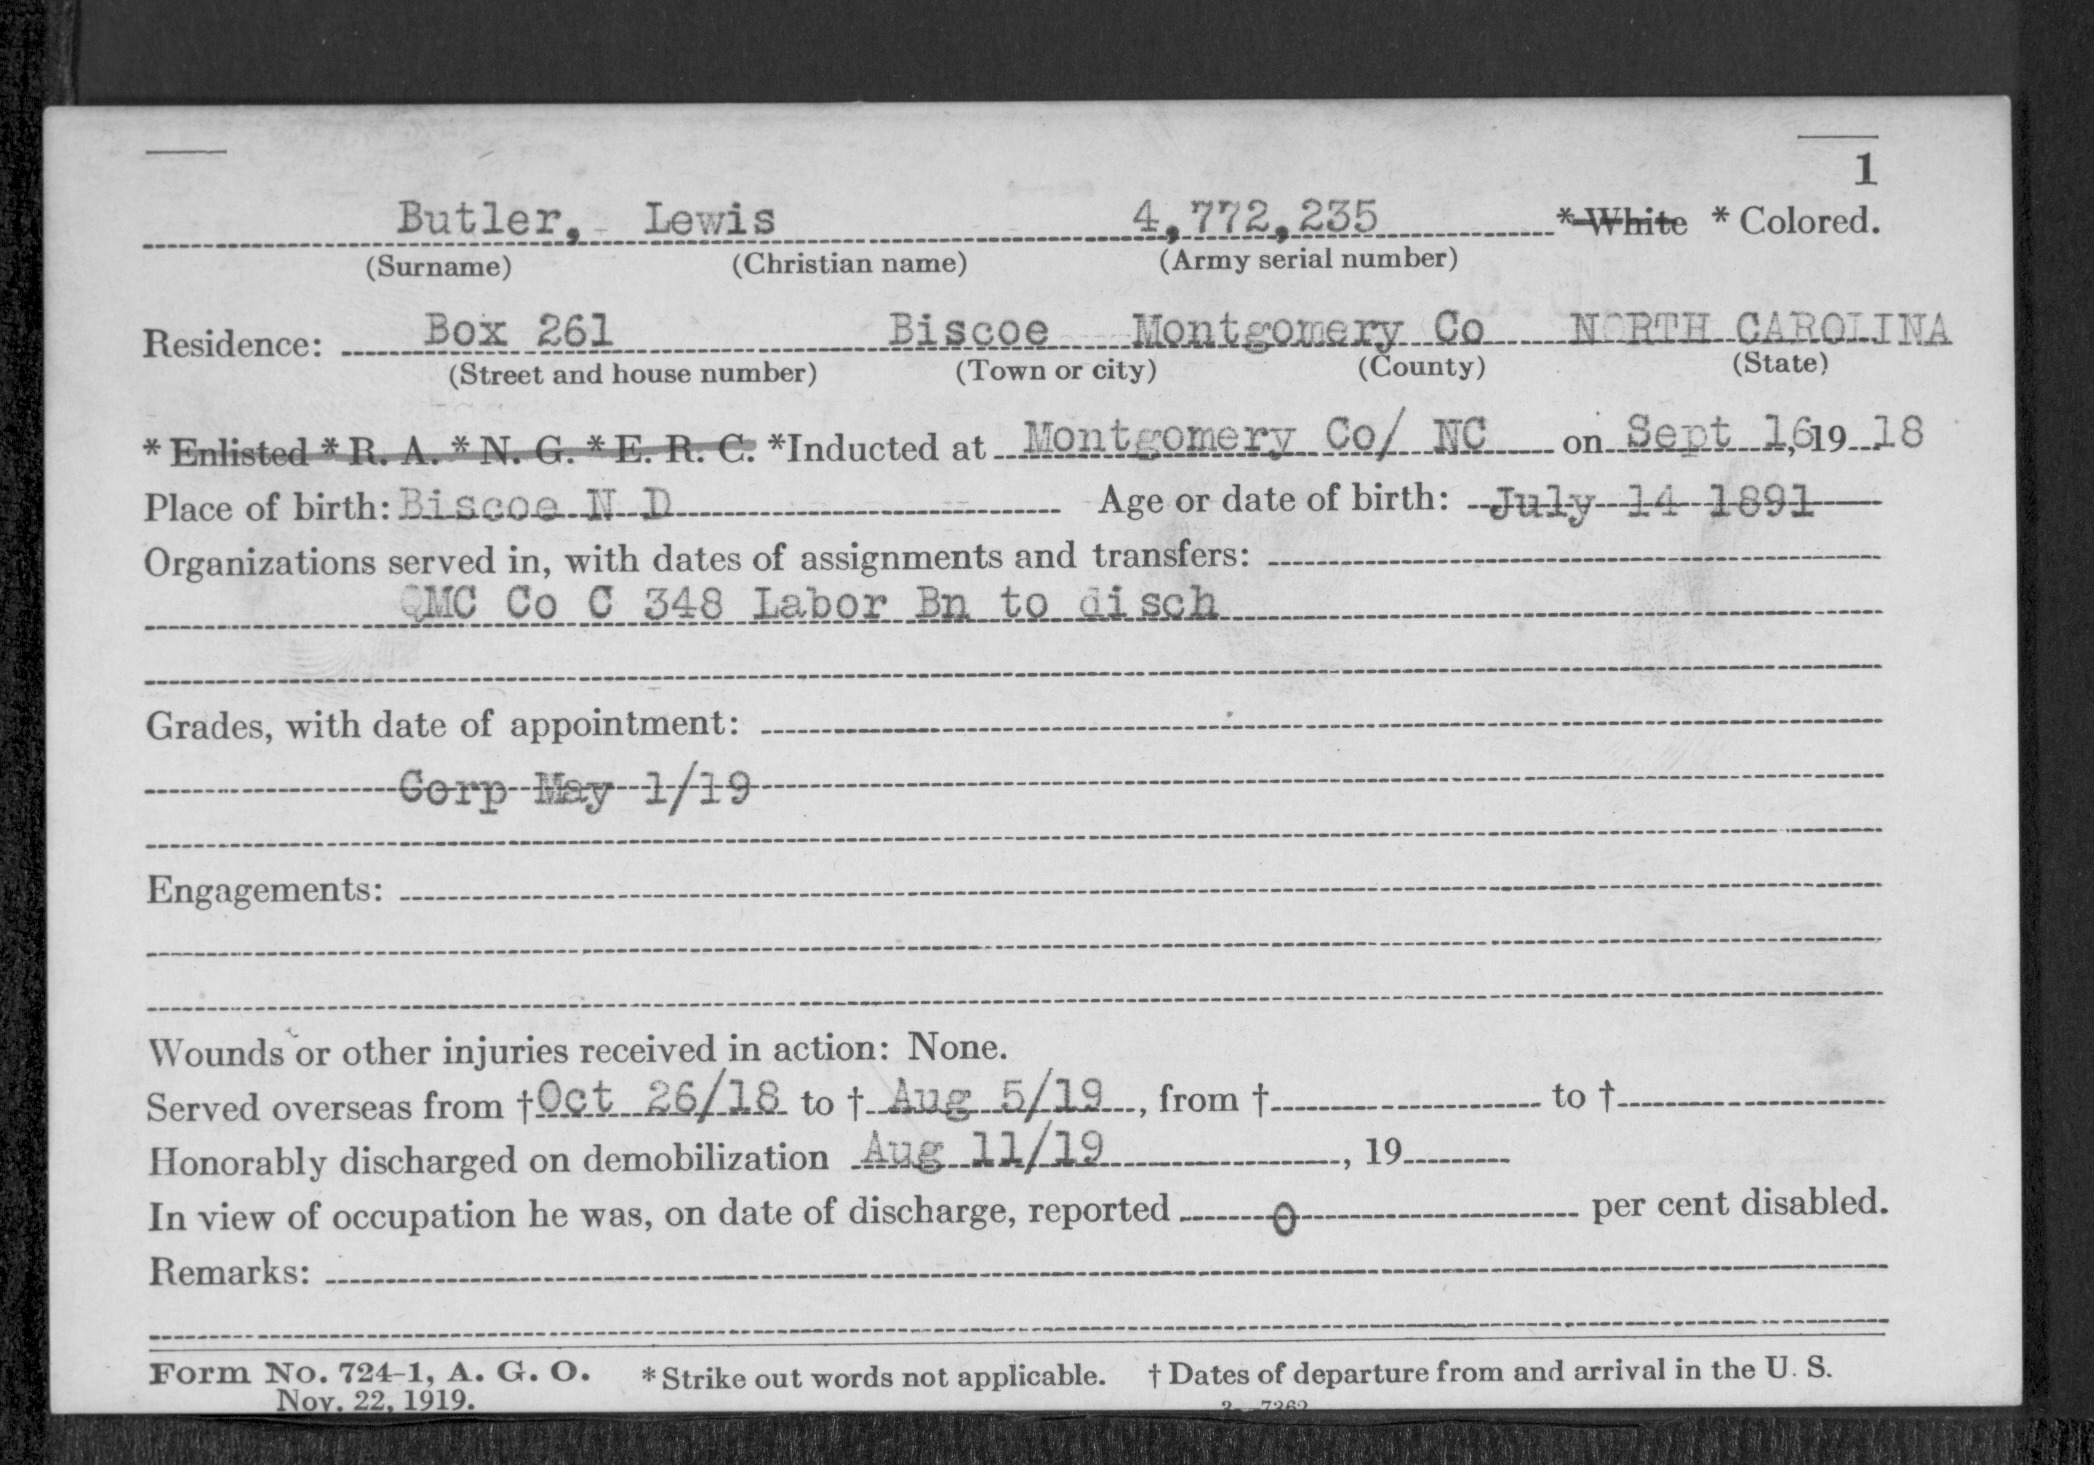 1
Butler, Lewis 4,772,235 * White * Colored.
(Surname) (Christian name) (Army serial number)
Residence: Box 261 Biscoe Montgomery Co NORTH CAROLINA
(Street and house number) (Town or city) (County) (State)
* Enlisted * R. A. * N. G. * E. R. C. *Inducted at Montgomery Co/ NC on Sept 16, 19 18
Place of birth: Biscoe N D Age or date of birth: July 14 1891
Organizations served in, with dates of assignments and transfers:
QMC Co C 348 Labor Bn to disch
Grades, with date of appointment:
Corp May 1/19
Engagements:
Wounds or other injuries received in action: None.
Served overseas from † Oct 26/18 to † Aug 5/19, from † to †
Honorably discharged on demobilization Aug 11/19, 19
In view of occupation he was, on date of discharge, reported 0 per cent disabled.
Remarks:
Form No. 724-1, A. G. O. * Strike out words not applicable. † Dates of departure from and arrival in the U. S.
Nov. 22, 1919. 3-7362